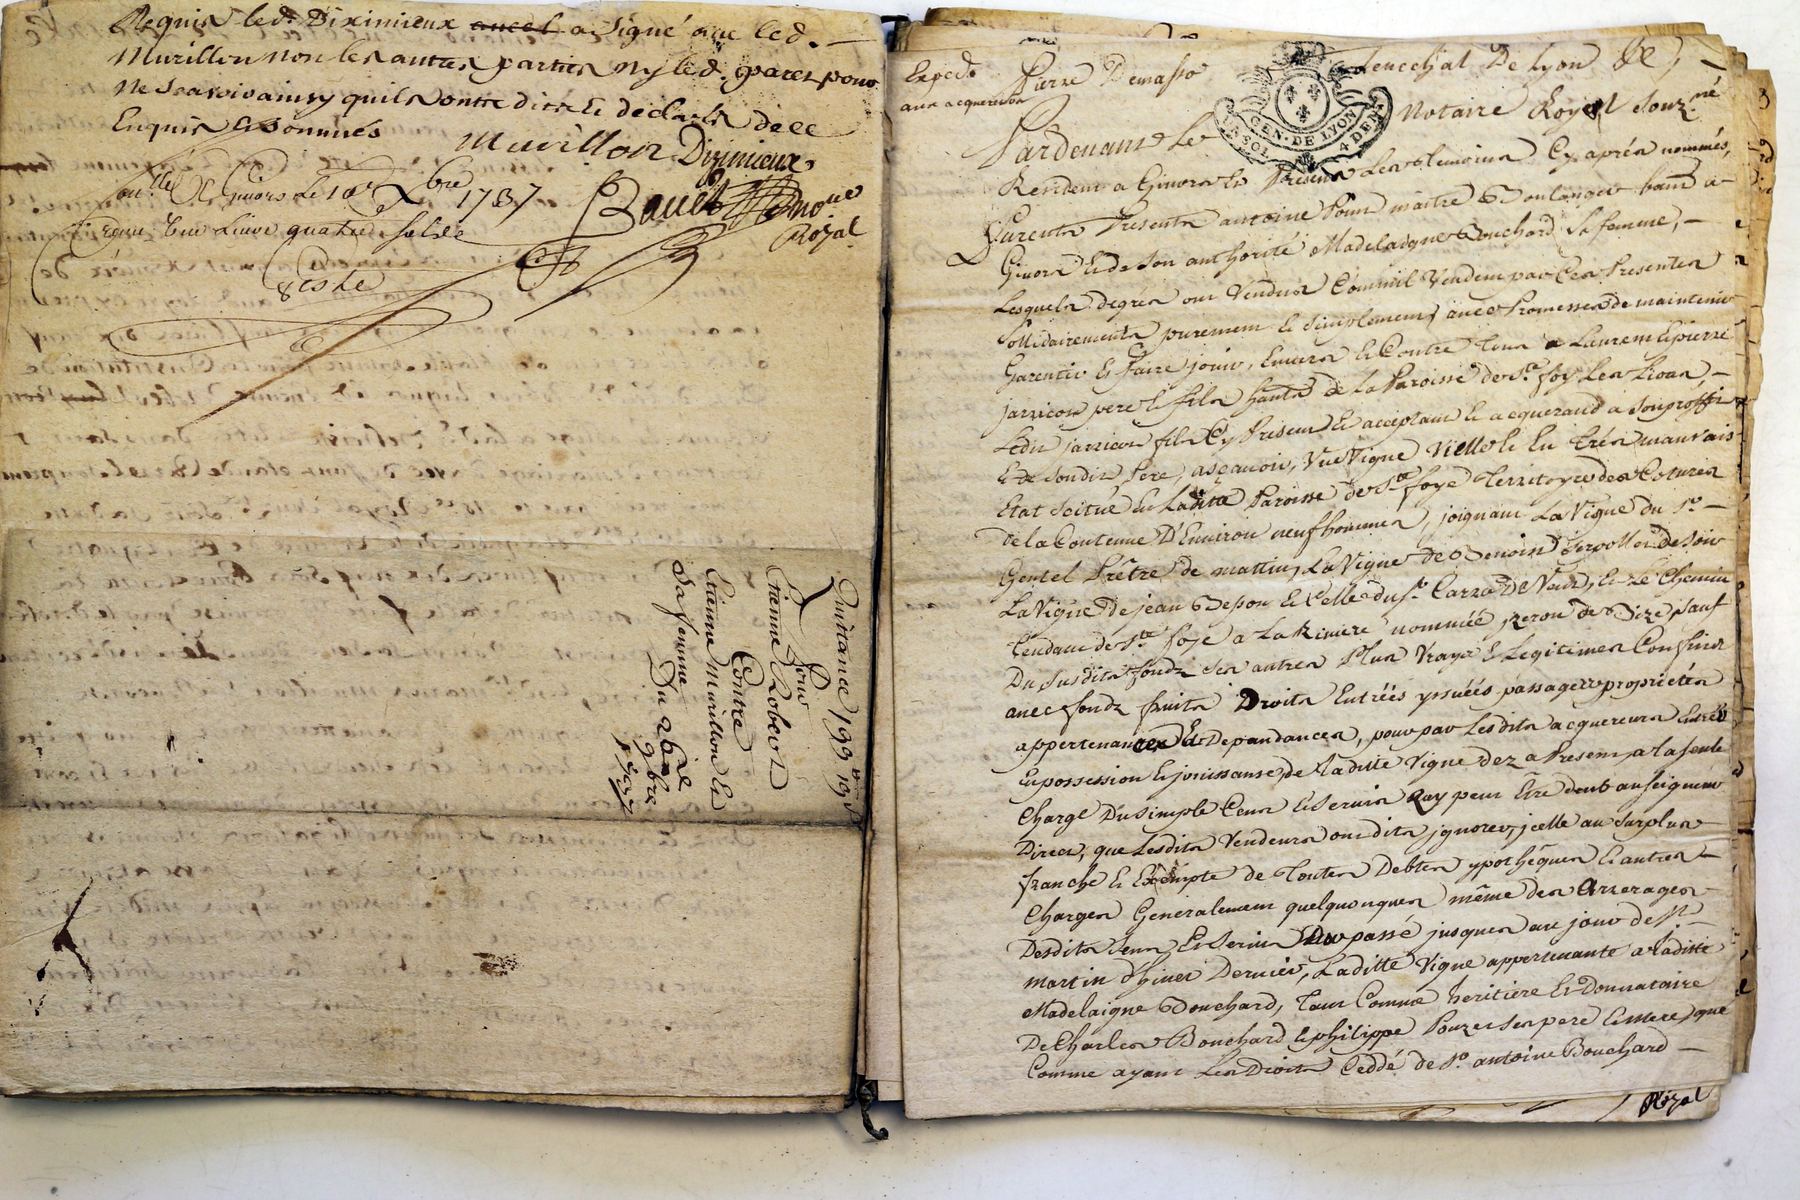 Requis led. Diximieux ancel a signé avec led.
Murillon non les autres parties ny led. garet pour
ne scavoir ainsy quils ont dit et declaré de ce
Enquis et sommés
Murillon Diximieux
1737
Bauet
Royal
reçeu une livre quatre sols
Quittance 199 10s
pour
Etienne Robert
Contre
Etienne Murillon et
sa femme
Du 26 9bre
1737
Exped.
aux acquereurs
Pardevant Le
Pierre Demasso
Seneschal De Lyon
GEN. DE LYON
4 DEN
Notaire Royal souz.né
Resident a Givors Et Presens Les temoins Cy aprés nommés,
Furent Presents antoine maitre Boulanger habt. a
Givors Et de son authorité Madelaigne Bouchard sa femme,
Lesquels degrés ont Vendus Comme il Vendent par Ces Presentes
sollidairements purement et simplement, avec Promesses de maintenir
Garentir et faire jouir, Envers et Contre tous a Laurent et pierre
jarricot pere et fils habts. de la Paroisse de Ste. foy Les
Ledit jarricot fils Cy Present et acceptant et acquerand a son proffit
Et de son dit Pere, asçavoir, Vne Vigne Vielle et En trés mauvais
Etat scituée En Ladite Paroisse de Ste. foye Territoyre des
de la Contenue D'Environ neuf hommes, joignant La Vigne du Sr.
Prêtre de matin, La Vigne de Benoist de soir
La Vigne de jean Besson et Celle du Sr. Carra De Vent, et Le Chemin
tendant de Ste. foye a La Riviere nommée de Bize sauf
Du susdits fondz ses autres Plus Vrays et Legitimes Confins
avec fondz fruits Droits Entrées yssuées passages proprietés
appertenances et Dependances, pour par Lesdits acquereurs Entrer
En possession et jouissance, de Laditte Vigne dez a Present a la seule
Charge Du simple Cens et servis qu'ay peut Etre deub au seigneur
Direct, que Lesdits Vendeurs ont dits jgnorer, jcelle au surplus
franche et Exempte de toutes Debtes ypothêques et autres
Charges Generalement quelquonques même des Arrerages
Desdits sens Et servis Du passé jusques au jour de St.
martin d'hiver Dernier, Laditte Vigne appertenante a Laditte
Madelaigne Bouchard, tant Comme heritiere Et Donnataire
De Charles Bouchard et philippe Pouzet ses pere et mere, que
Comme ayant Les Droits Ceddé de Sr. antoine Bouchard
Royal